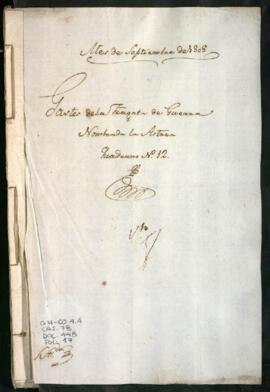 Mes de Septiembre de 1808
Gastos de la Fragata de Guerra
Nombrada la Astrea
Quaderno N.º 12
GM-CO 4.4
CAJ. 78
DOC. 448
FOL. 17